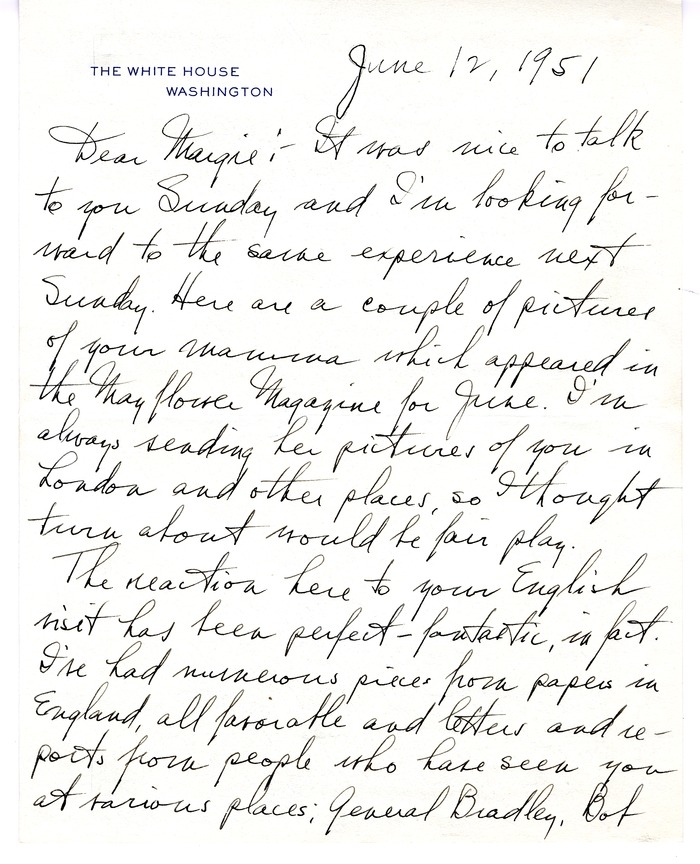 THE WHITE HOUSE
WASHINGTON
June 12, 1951
Dear Margie:- It was nice to talk
to you Sunday and I'm looking for-
ward to the same experience next
Sunday. Here are a couple of pictures
of your mamma which appeared in
the Mayflower Magazine for June. I'm
always sending her pictures of you in
London and other places, so I thought
turn about would be fair play.
The reaction here to your English
visit has been perfect-fantastic, in fact.
I've had numerous pieces from papers in
England, all favorable and letters and re-
ports from people who have seen you
at various places; General Bradley, Bob